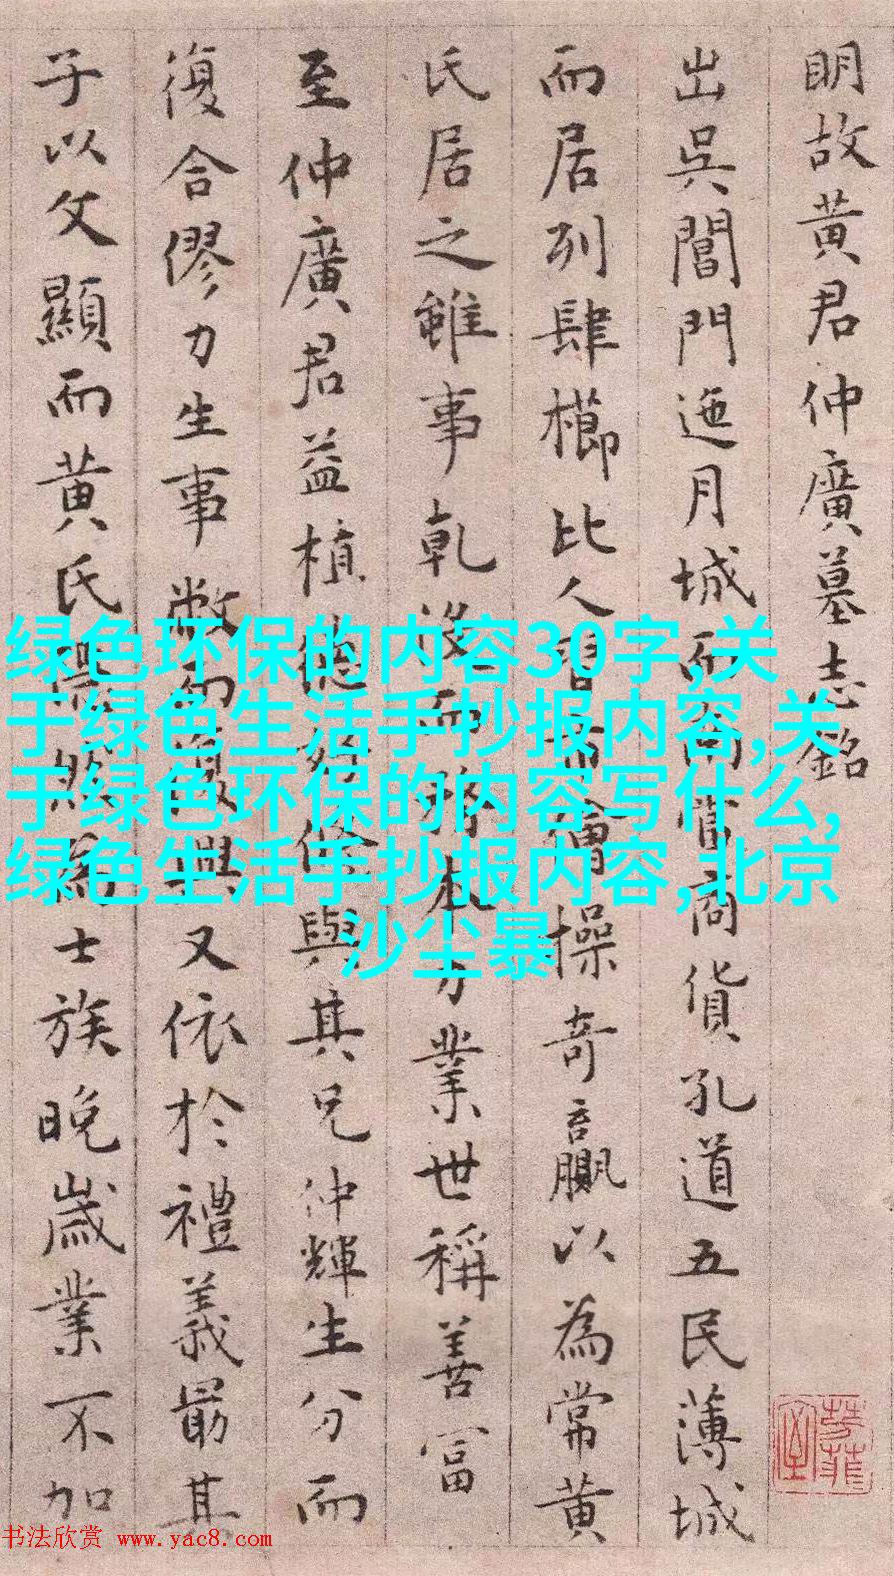 明故黄君仲廣墓志銘
出吳閶門迤月城而南當商貨孔道五民薄城
而居列肆櫛比人習市儈操奇贏以為常黄
氏居之雖事乾没而務本力業世稱善富
至仲廣君益植德好脩與其兄仲輝生分而
復合僇力生事敝而復興又依於禮義最其
子以文顯而黄氏隱然為士族晚歲業不加
绿色环保的内容30字,关
于绿色生活手抄报内容,关
于绿色环保的内容写什么,
绿色生活手抄报内容,北京
沙尘暴
书法欣赏 www.yac8.com